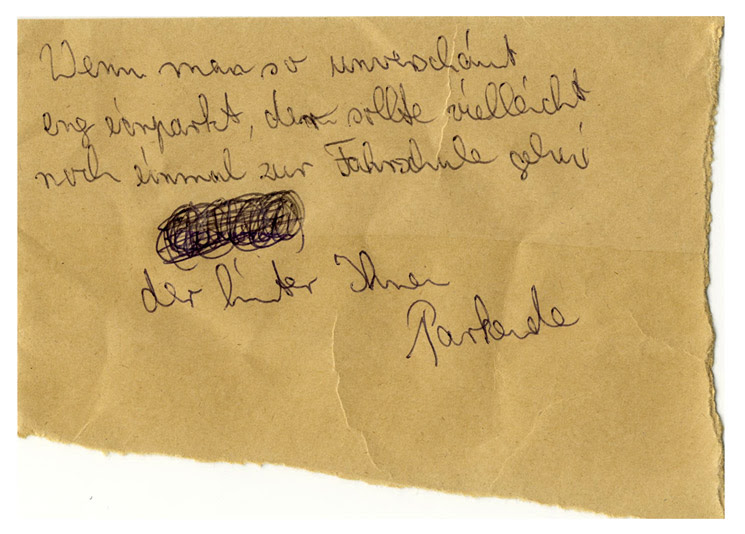 Wenn man so unverschämt
eng einparkt, dem sollte vielleicht
noch einmal zur Fahrschule gehen
der hinter Ihnen
Parkende